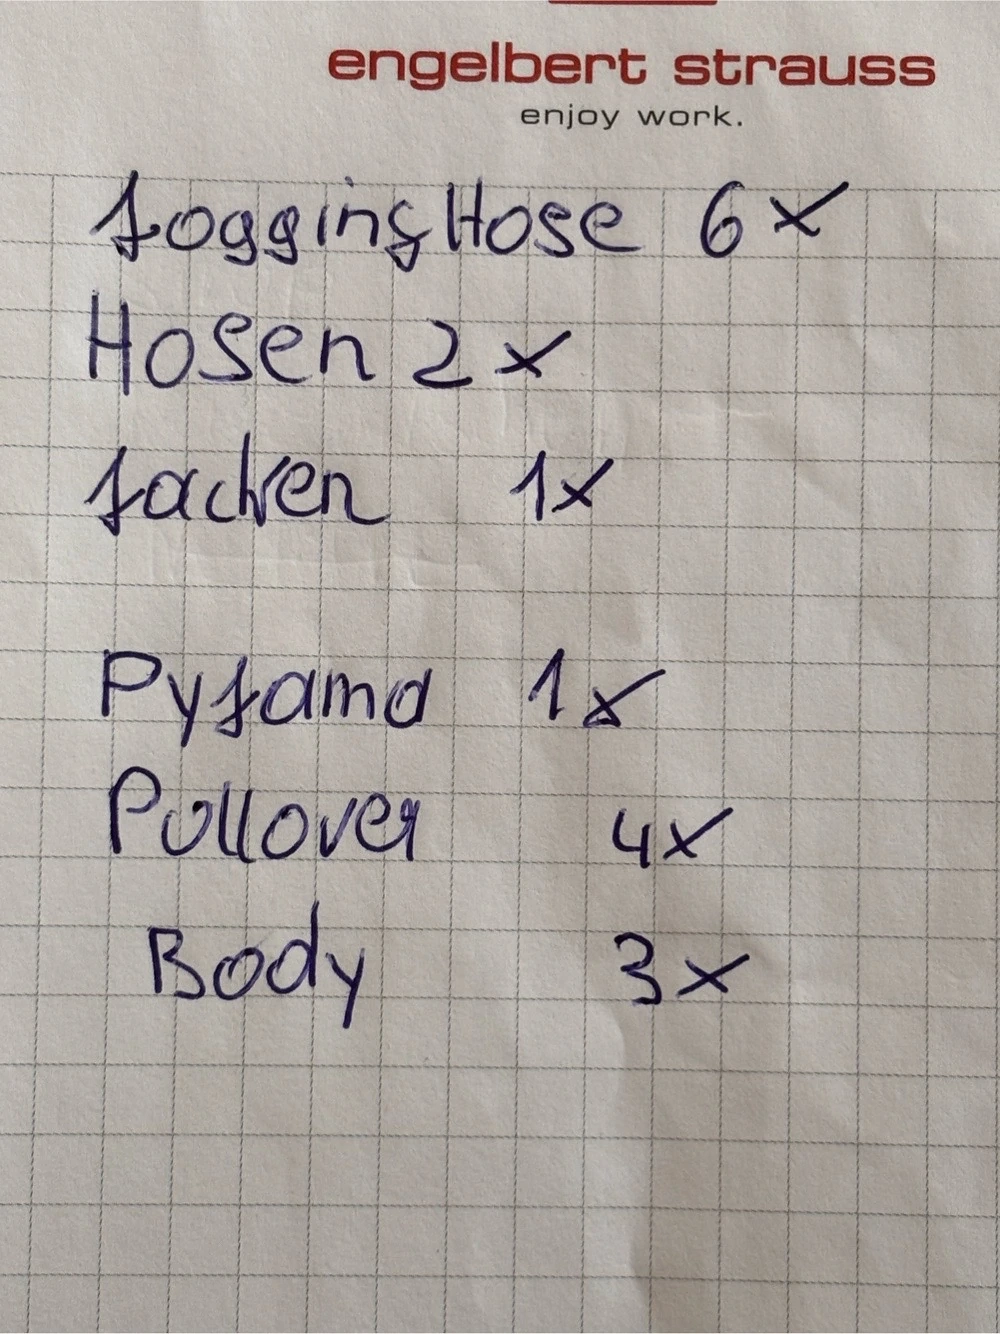 engelbert strauss
enjoy work.
Jogging Hose 6x
Hosen 2x
Jacken 1x
Pyjama 1x
Pullover 4x
Body 3x